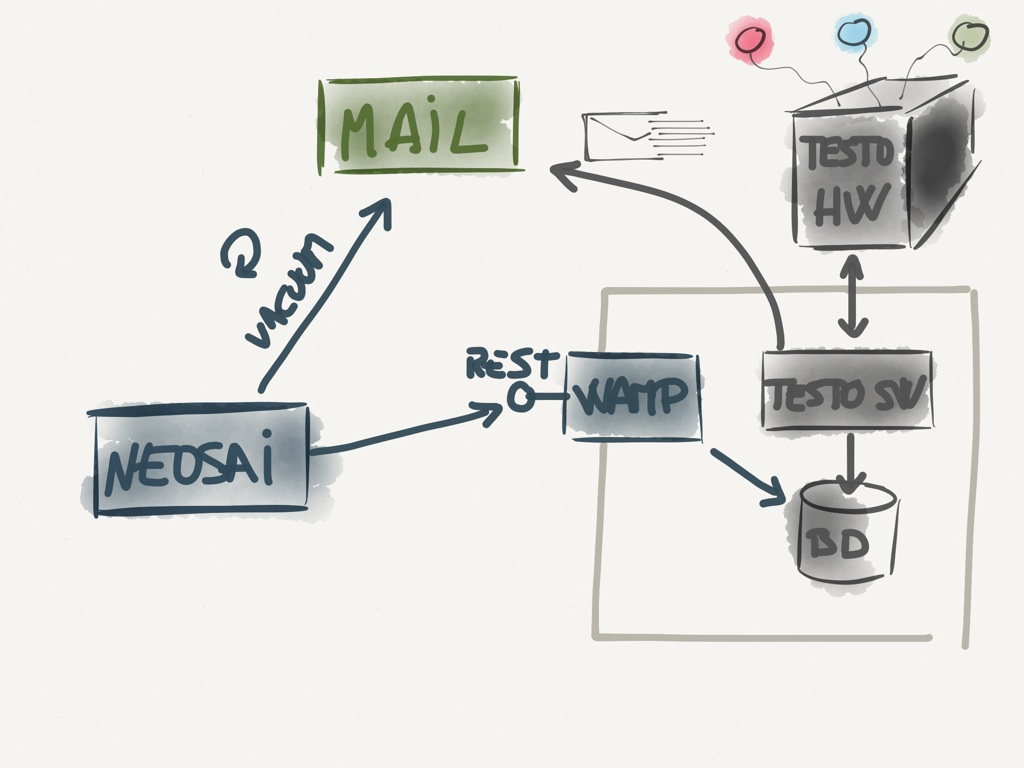 MAIL
TESTO
HW
VACUUM
REST
WAMP
TESTO SW
NEOSAI
BD